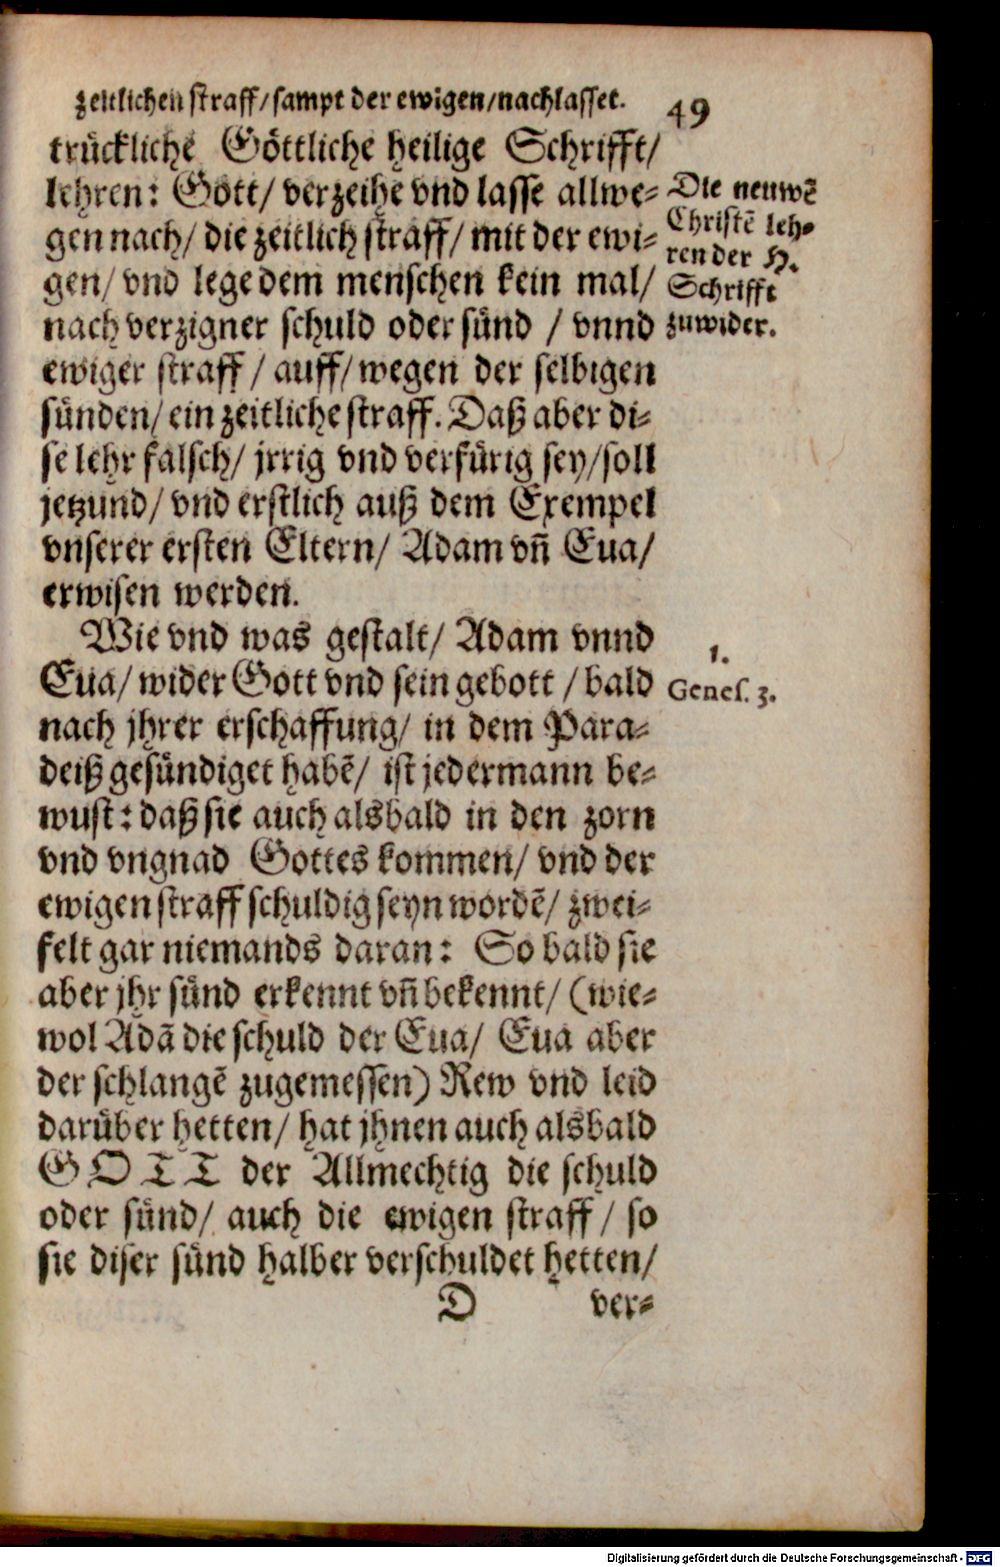 zeitlichen straff/sampt der ewigen/nachlasset. 49
truckliche Göttliche heilige Schrifft/
lehren: Gott/ verzeihe vnd lasse allwe-
gen nach/ die zeitlich straff/ mit der ewi-
gen/ vnd lege dem menschen kein mal/
nach verzigner schuld oder sünd / vnnd
ewiger straff / auff/ wegen der selbigen
sünden/ ein zeitliche straff. Daß aber di-
se lehr falsch/ jrrig vnd verfürig sey/soll
jetzund/ vnd erstlich auß dem Exempel
vnserer ersten Eltern/ Adam vñ Eua/
erwisen werden.
Die neuwẽ
Christẽ leh-
ren der H.
Schrifft
zuwider.
Wie vnd was gestalt/ Adam vnnd
Eua/ wider Gott vnd sein gebott / bald
nach jhrer erschaffung/ in dem Para-
deiß gesündiget habẽ/ ist jedermann be-
wust: daß sie auch alsbald in den zorn
vnd vngnad Gottes kommen/ vnd der
ewigen straff schuldig seyn wordẽ/ zwei-
felt gar niemands daran: So bald sie
aber jhr sünd erkennt vñ bekennt/ (wie-
wol Adã die schuld der Eua/ Eua aber
der schlangẽ zugemessen) Rew vnd leid
darüber hetten/ hat jhnen auch alsbald
GOTT der Allmechtig die schuld
oder sünd/ auch die ewigen straff / so
sie diser sünd halber verschuldet hetten/
1.
Genes. 3.
D ver-
Digitalisierung gefördert durch die Deutsche Forschungsgemeinschaft - DFG